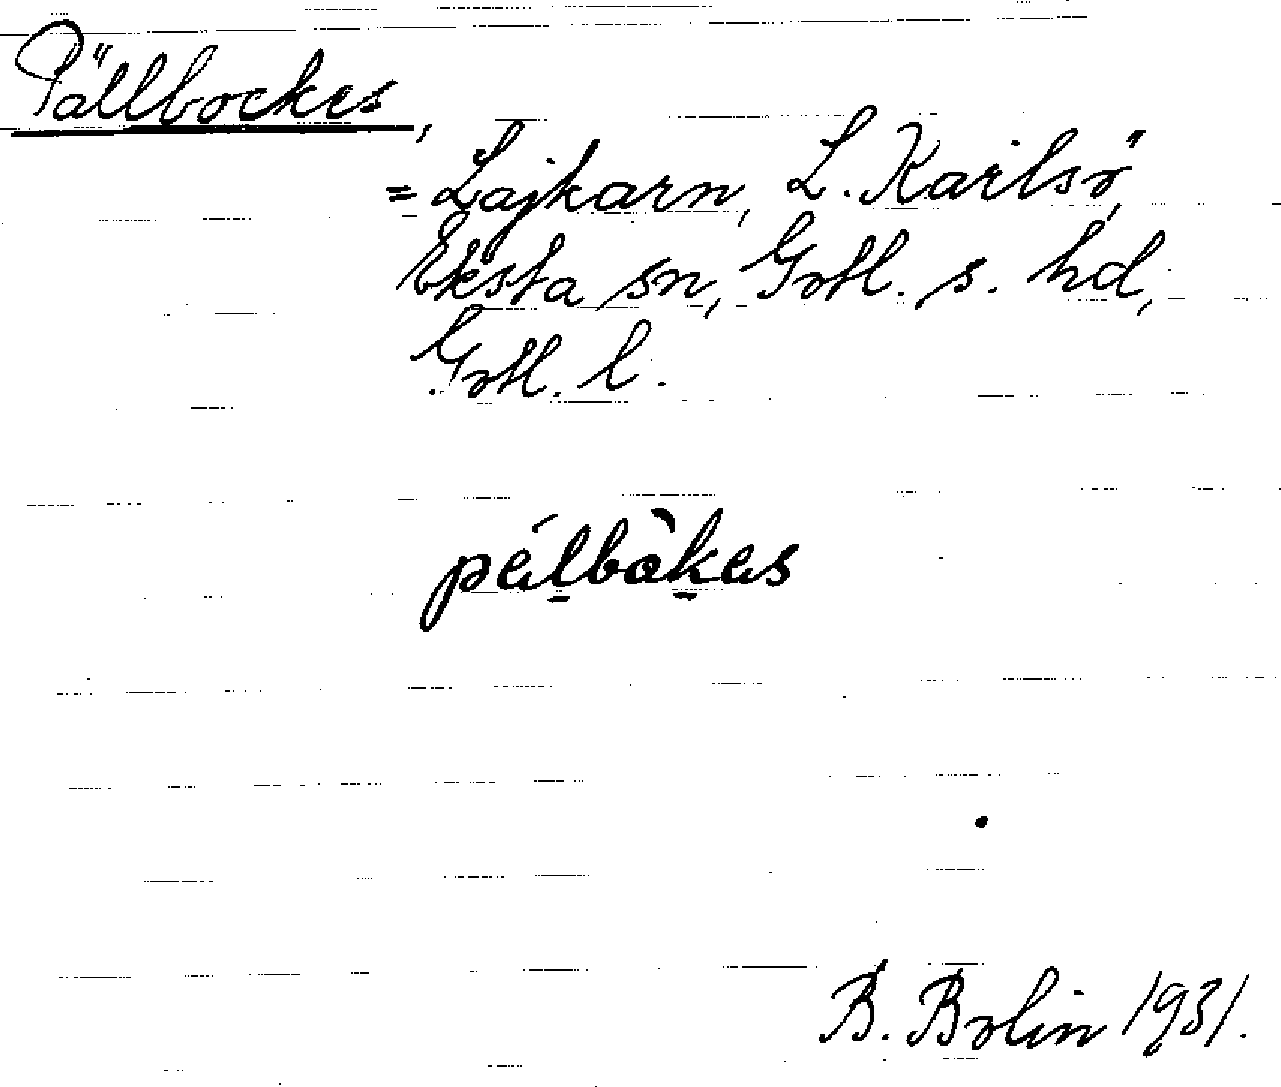 Pällbockes,
= Lajkarn, L. Karlsö,
Eksta sn, Gotl. s. hd,
Gotl. l.
pélbòkes
B. Bolin 1931.